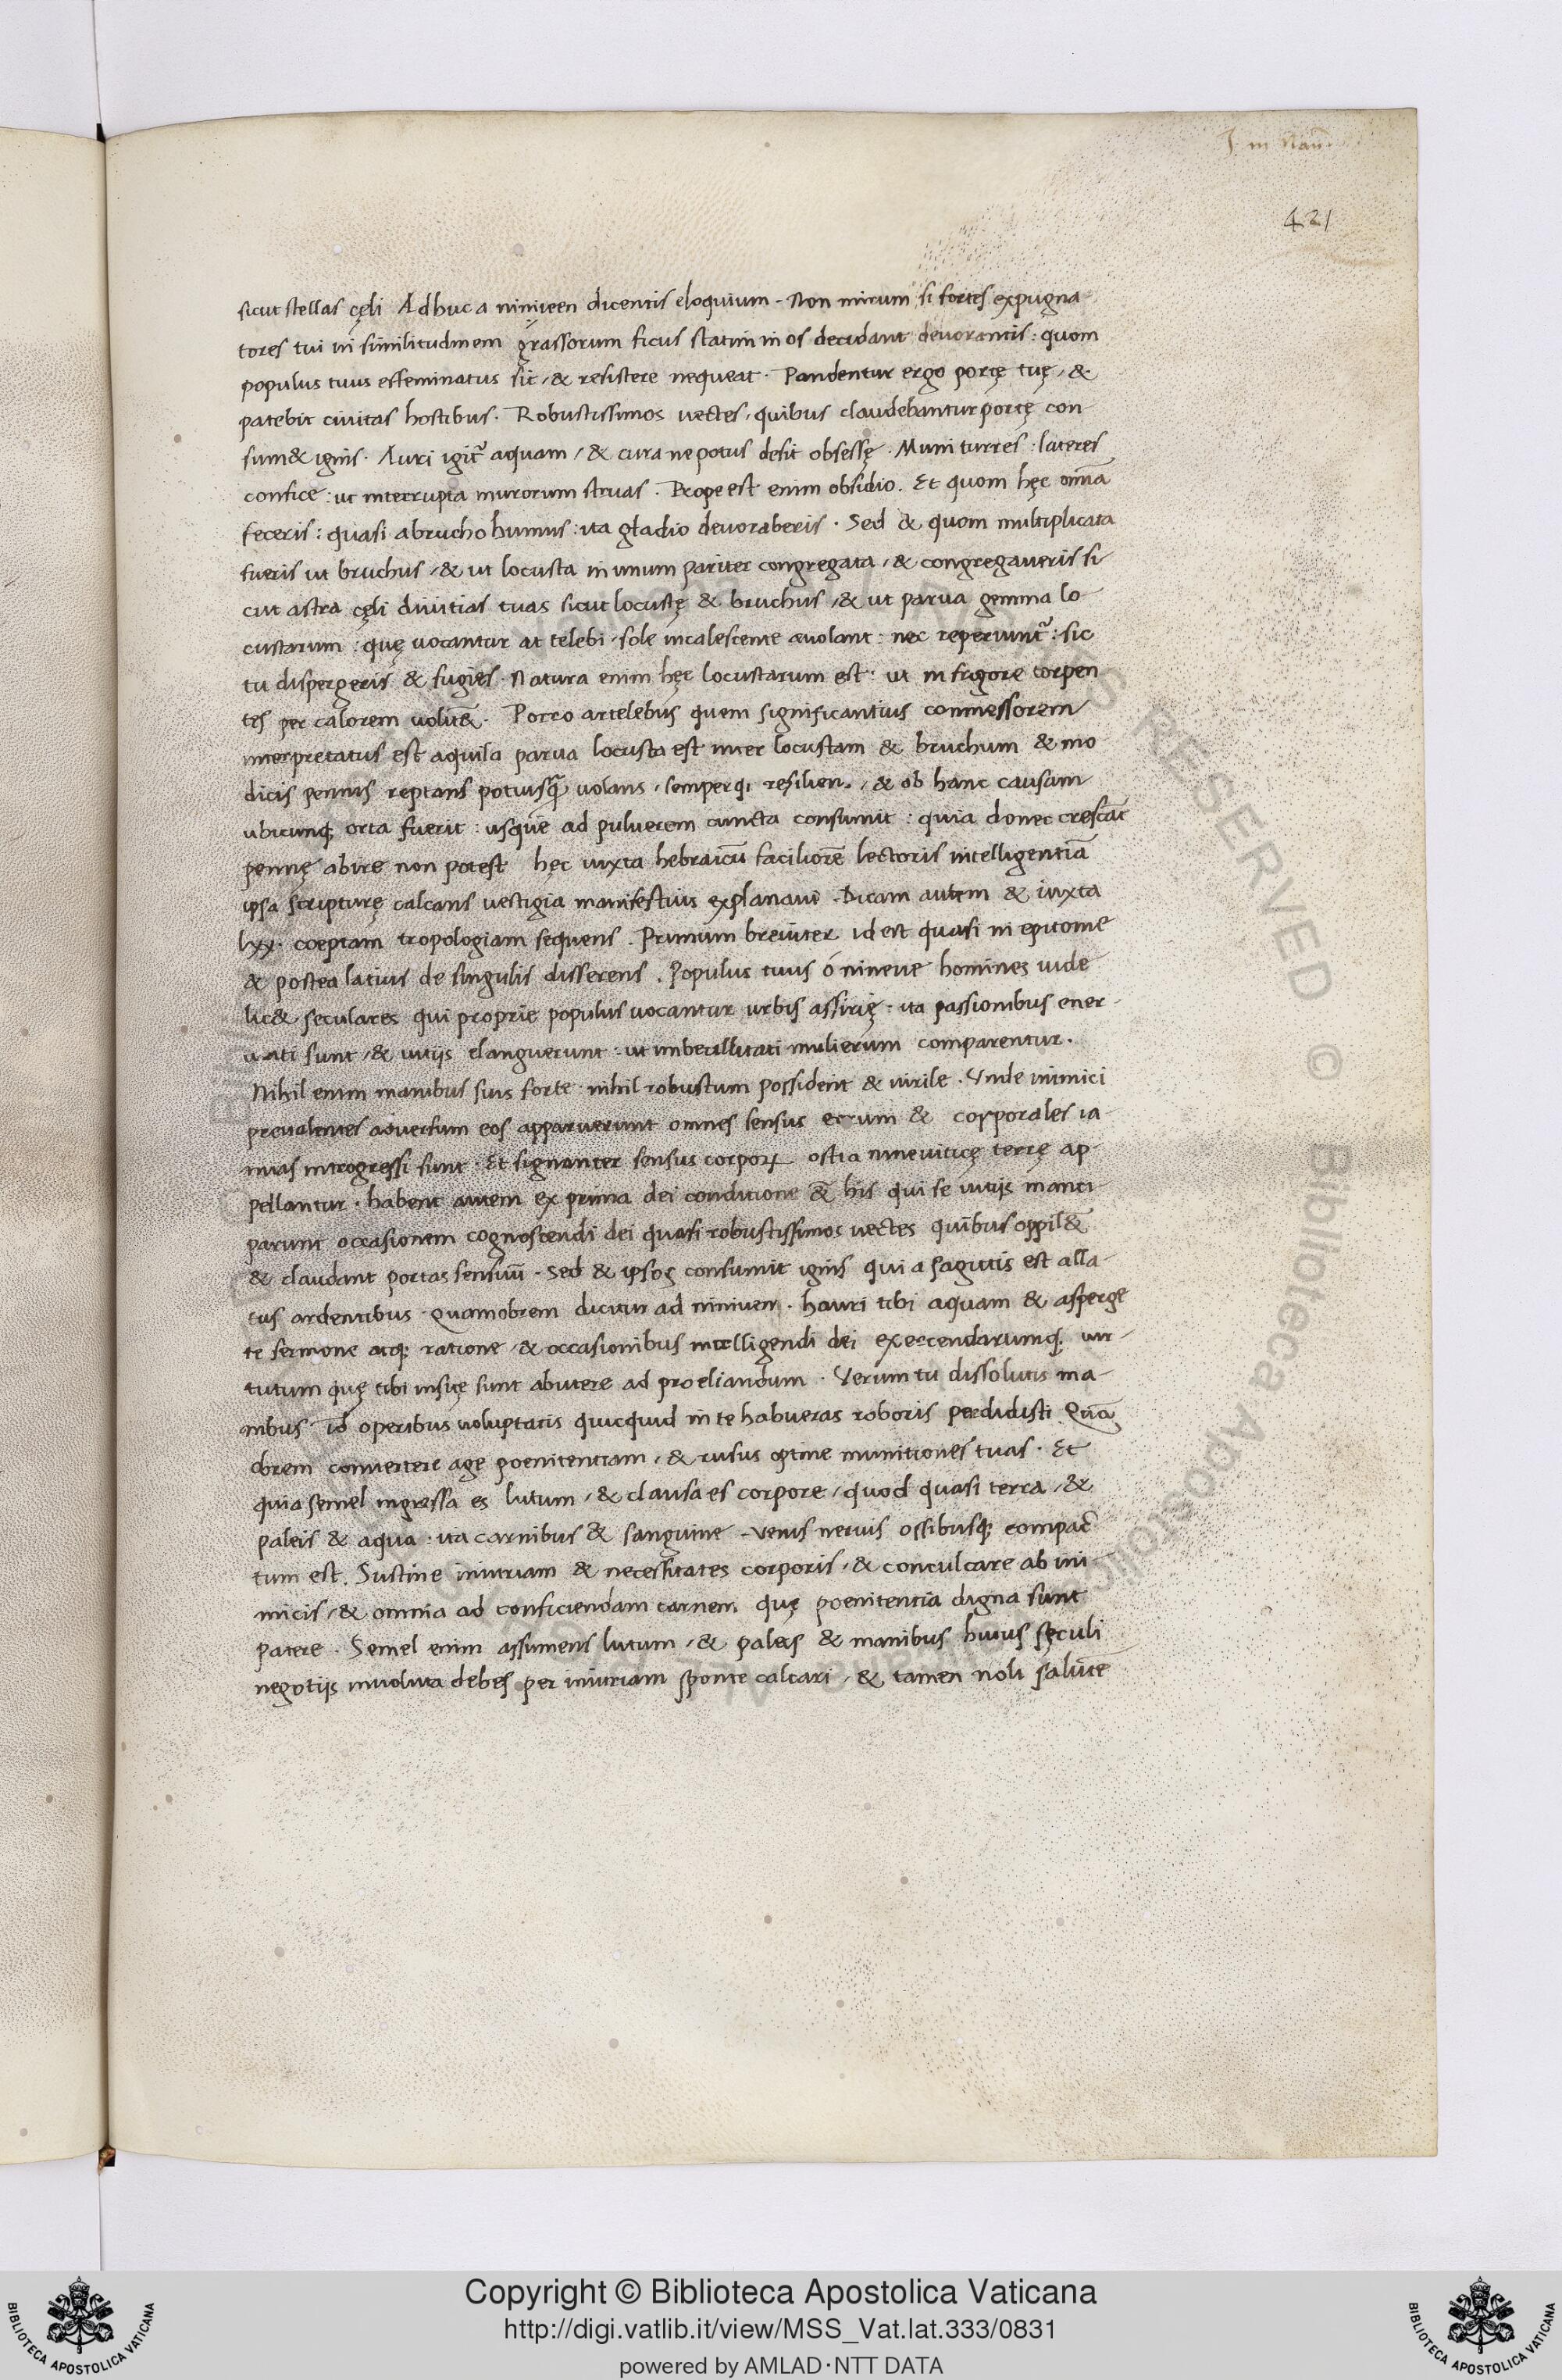 421
sicut stellas cęli Adhuc a niniueen dicentis eloquium. Non mirum si fortes expugna
tores tui in similitudinem grassorum ficus statim in os decidant deuorantis: quom
populus tuus effeminatus sit, & resistere nequeat. Pandentur ergo portę tuę, &
patebit ciuitas hostibus. Robustissimos uectes, quibus claudebantur portę con
sum& ignis. Auri igit᷑ aquam, & cura ne potus desit obsessę. Muni turres. lateres
confice: ut interrupta murorum struas. Prope est enim obsidio. Et quom hęc om̄ia
feceris: quasi a brucho humus: ita gladio deuoraberis. Sed & quom multiplicata
fueris ut bruchus, & ut locusta in unum pariter congregata, & congregaueris si
cut astra cęli diuitias tuas sicut locustę & bruchus, & ut parua gemma lo
custarum: quę uocantur at telebi, sole incalescente auolant: nec reperiunt᷑: sic
tu dispergeris & fugies. Natura enim hęc locustarum est: ut in frigore torpen
tes per calorem uolit&. Porro artelebus quem significantius commessorem
interpretatus est aquila parua locusta est inter locustam & bruchum & mo
dicis pennis reptans potiusq̃ uolans, semperq; resiliens, & ob hanc causam
ubicunq; orta fuerit: usque ad puluerem cuncta consumit: quia donec crescāt
pennę abire non potest hęc iuxta hebraicū faciliorē lectoris intelligentiā
ipsa scripturę calcans uestigia manifestius explanaui. Dicam autem & iuxta
lxx. coeptam tropologiam sequens. Primum breuiter id est quasi in epitome
& postea latius de singulis disserens. Populus tuus ó nineue homines uide
lic& seculares qui proprie populus uocantur urbis assirię: ita passionibus ener
uati sunt, & uitijs elanguerunt: ut imbecillitati mulierum comparentur.
Nihil enim manibus suis forte nihil robustum possident & uirile. Vnde inimici
preualentes aduersum eos apparuerunt omnes sensus eorum & corporales ia
nuas introgressi sunt. Et signanter sensus corporꝝ ostia nineuiticę terrę ap
pellantur. habent autem ex prima dei conditione & his qui se uitijs manci
parunt occasionem cognoscendi dei quasi robustissimos uectes quibus oppil&
& claudant portas sensuū. Sed & ipsos consumit ignis qui a sagittis est alla
tus ardentibus. Quamobrem dicitur ad niniuen. hauri tibi aquam & asperge
te sermone atq; ratione, & occasionibus intelligendi dei exercendarumq; uir
tutum quę tibi insitę sunt abutere ad proeliandum. Verum tu dissolutis ma
nibus id operibus uoluptatis quicquid in te habueras roboris perdidisti Quā
obrem conuertere age poenitentiam, & rusus optine munitiones tuas. Et
quia semel ingressa es lutum, & clausa es corpore, quod quasi terra, &
paleis & aqua. ita carnibus & sanguine. uenis neruis ossibusq; compac̄
tum est. Sustine iniuriam & necessitates corporis, & conculcare ab ini
micis, & omnia ad conficiendam carnem quę poenitentia digna sunt
patere. Semel enim assumens lutum, & paleas & manibus huius sęculi
negotijs inuoluta debes per iniuriam sponte calcari, & tamen noli salute
RESERVED © Biblioteca Apostolica
Copyright © Biblioteca Apostolica Vaticana
http://digi.vatlib.it/view/MSS_Vat.lat.333/0831
powered by AMLAD·NTT DATA
BIBLIOTECA APOSTOLICA VATICANA
BIBLIOTECA APOSTOLICA VATICANA